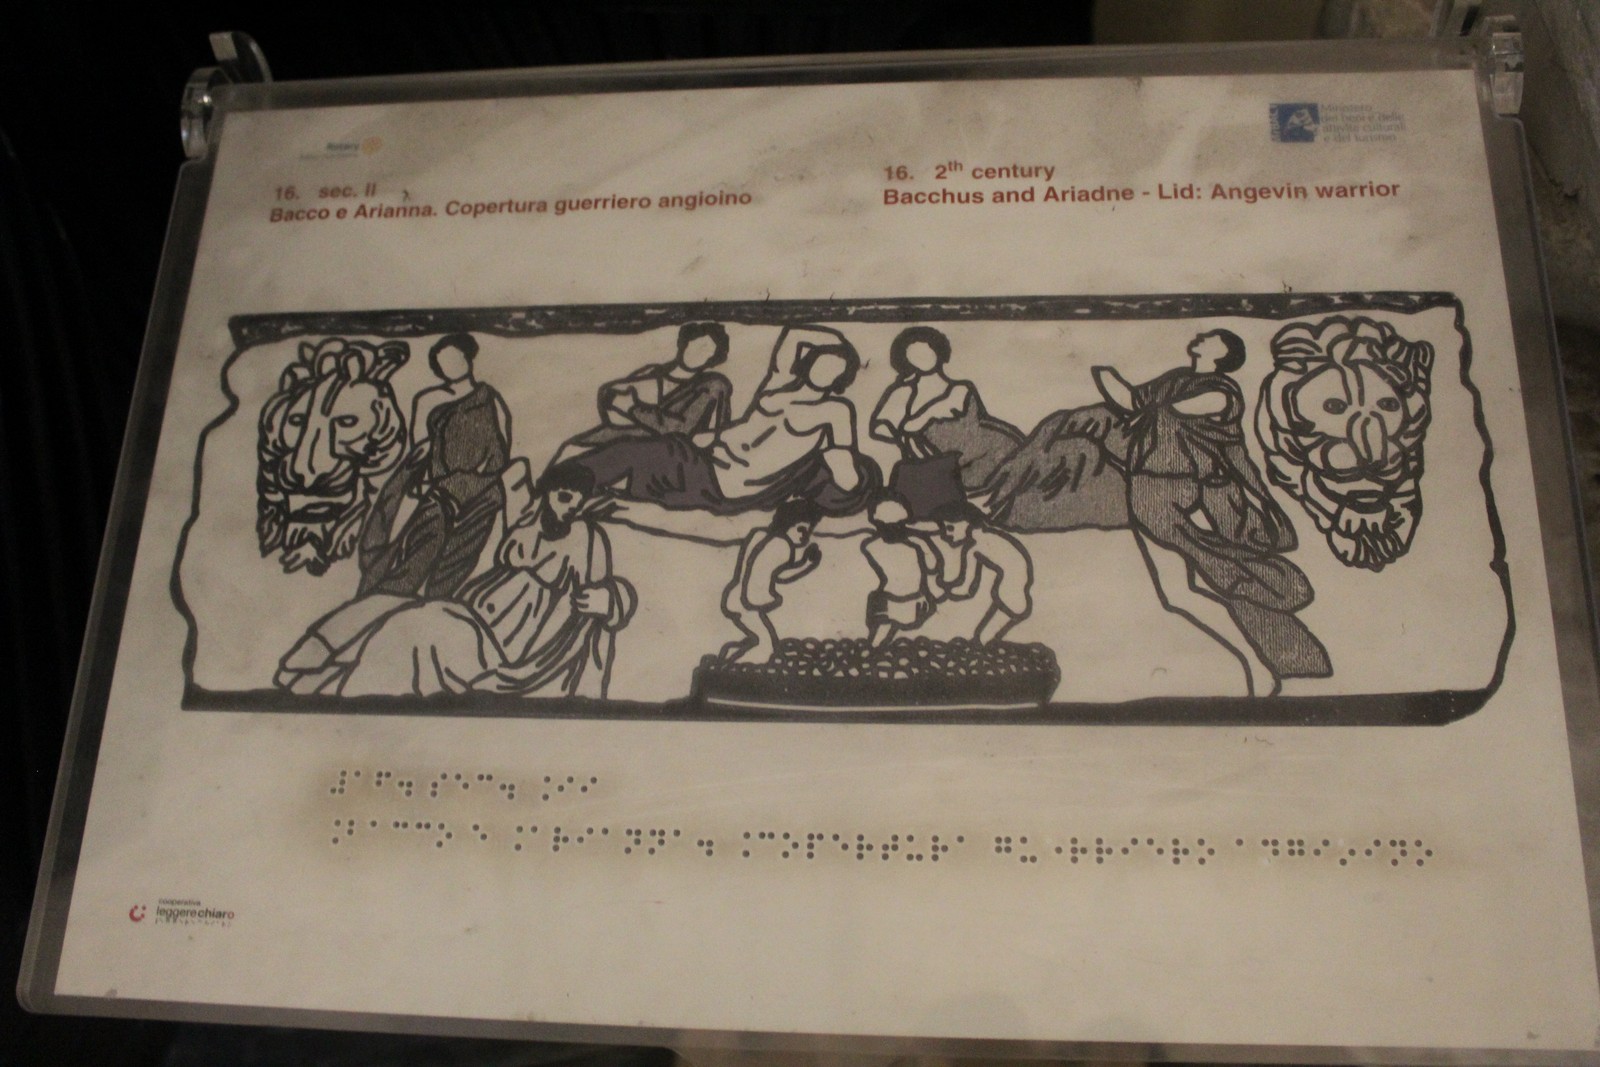 Rotary
Ministero
dei beni e delle
attività culturali
e del turismo
16. sec. II
Bacco e Arianna. Copertura guerriero angioino
16. 2th century
Bacchus and Ariadne - Lid: Angevin warrior
cooperativa
leggerechiaro